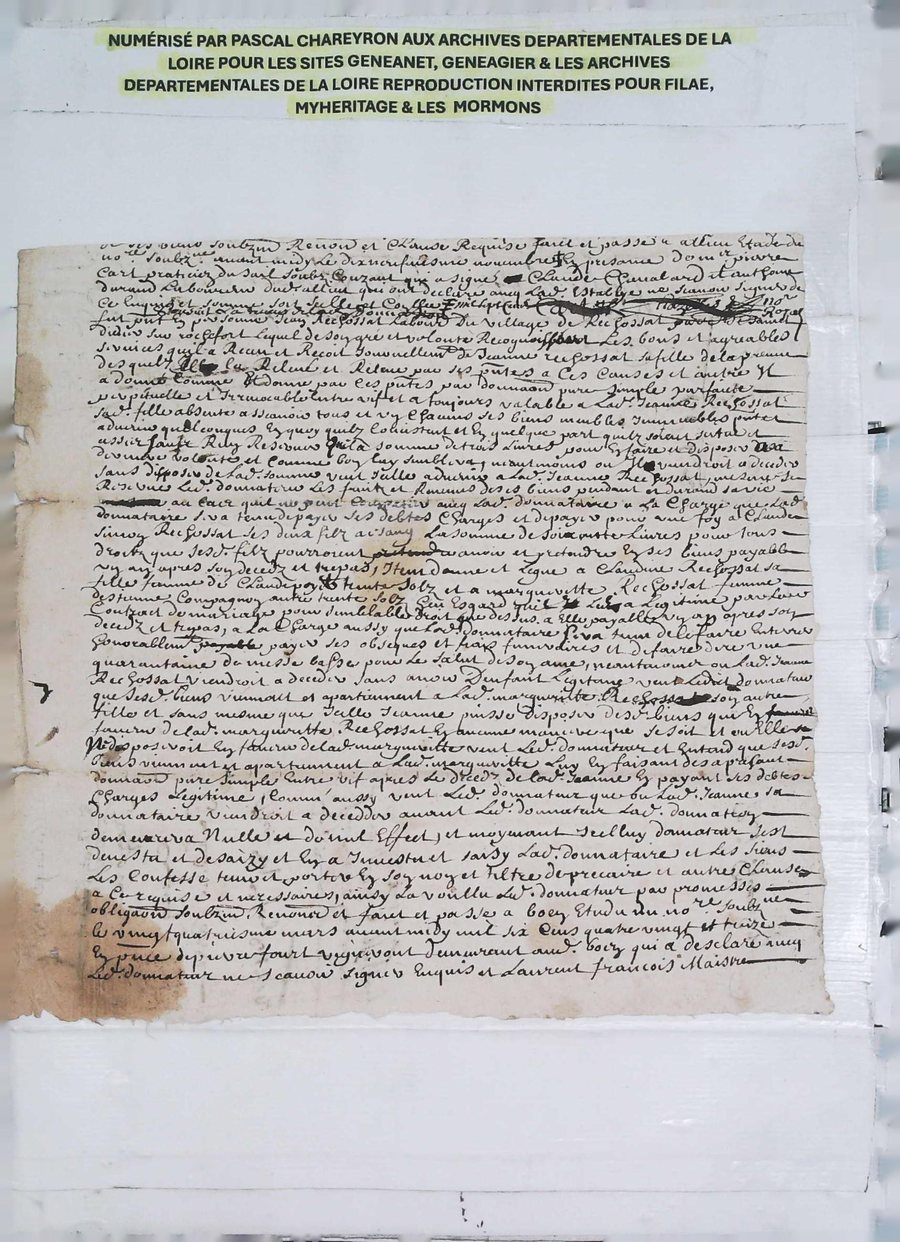 NUMÉRISÉ PAR PASCAL CHAREYRON AUX ARCHIVES DEPARTEMENTALES DE LA
LOIRE POUR LES SITES GENEANET, GENEAGIER & LES ARCHIVES
DEPARTEMENTALES DE LA LOIRE REPRODUCTION INTERDITES POUR FILAE,
MYHERITAGE & LES MORMONS
de ses biens soubzm Renon et Clause Requise faict et passé a allieu Etude du
no.re soubz.ne avant midy le novembre En presance de m.e pierre
Cart praticien du dud soubz Couzant qui a signé Claude Chemaland et anthoine
durand Laboureur dud allieu qui ont declaré avec Lad. ne scavoir signer de
Ce Enquis et somme
personne Jean Rechossat Labour. Du village de Rechossat de Saint
didier sur rochefort Lequel de son gre et volonte Recognoissant Les bons et agreables
services quil a Receu et Recoit Jeanne rechossat sa fille de la preuve
desquelz Il la Releve et Releve par ses p.ntes a Ces Causes et autre Il
a donné Comme Il donne par Ces p.ntes par donnaon pure simple parfaite
perpetuelle et Irrevocable Entre vif et a toujours valable a Lad. Jeanne Rechossat
sad. fille absente a scavoir tous et un Chacuns ses biens meubles Immeubles p.nt et
advenir quelconques En quoy quilz Consistent et En quelque part quilz soient
assis sauf Reserve la somme de trois Livres pour En faire et disposer a sa
derniere volonte et Comme bon luy semblera, neantmoins ou Il viendroit a deceder
sans disposer de Lad. somme veut advenir a Lad. Jeanne Rechossat,
Reserve Led. donnateur Les fruits et Revenus de ses biens pendant et durand sa vie
au Cas quil ne peut avec Lad. donnataire a La Charge que Lad.
donnataire sera tenue de payer ses debtes Charges et de payer pour une foy a Claude
simon Rechossat ses deux filz La somme de soixante Livres pour tous
droitz que sesd. filz pourroient avoir et pretendre En ses biens payable
un an apres son decedz et trepas, Item donne et Legue a Claudine Rechossat sa
fille femme de Claude trente solz et a marguerite Rechossat femme
destienne Compagnon autre trente solz Eu Esgard quil Luy a Legitime par Leur
Contract de mariage pour semblable droit que dessus, a Elle payable un an apres son
decedz et trepas, a La Charge aussy que Lad. donnataire sera tenue de le faire Enterrer
honorablem payer ses obseques et frais funeraires et de faire dire une
quarantaine de messe basse pour Le Salut de son ame, neantmoins ou Lad. Jeanne
Rechossat viendroit a deceder sans avoir Denfant Legitime veut Ledit donnateur
que sesd. biens viennent et apartiennent a Lad. marguerite Rechossat son autre
fille et sans mesme que Icelle Jeanne puisse disposer desd. biens que En
faveur de lad. marguerite Rechossat En aucune maniere que se soit et ou Elle
disposeroit En faveur de lad. marguerite veut Led. donnateur et Entend que sesd.
biens viennent et apartiennent a Lad. marguerite Luy En faisant des a present
donnaon pure simple Entre vif apres Le deced. de lad. Jeanne En payant ses debtes
Charges Legitime, aussy veut Led. donnateur que ou Lad. Jeanne sa
donnataire viendroit a deceder avant Led. donnateur Lad. donnation
demeurera Nulle et de nul Effect, et moyenant Icelluy donnateur sest
devestu et desaizy et En a Investu et saisy Lad. donnataire et Les siens
Les Confesse tenir et porter En son nom et tiltre de precaire et autre Clause
a Ce requise et necessaires, ainsy La voullu Led. donnateur par promesses
obligaon soubzm Renonon et faict et passé a boen Etude du no.re soubz.ne
le vingtquatriesme mars avant midy mil six Cens quatre vingt et treize
En p.nce de pierre fourt vigneront demeurant aud. boen qui a desclaré avec
Led. donnateur ne scavoir signer Enquis et Laurent francois Maistre